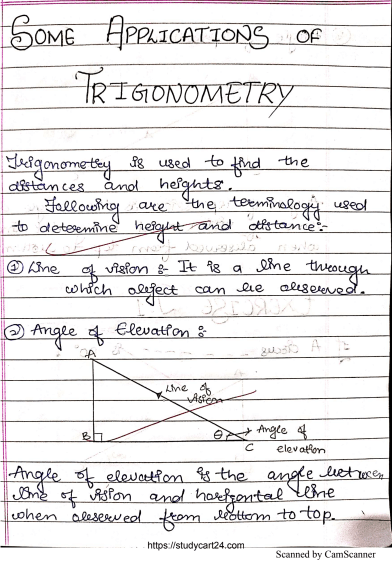 SOME APPLICATIONS OF
TRIGONOMETRY
Trigonometry is used to find the
distances and heights.
Following are the terminology used
to determine height and distance:-
① Line of vision :- It is a line through
which object can be observed.
② Angle of Elevation :
A
Line of
vision
B
θ
C
Angle of
elevation
Angle of elevation is the angle between
line of vision and horizontal line
when observed from bottom to top.
https://studycart24.com
Scanned by CamScanner